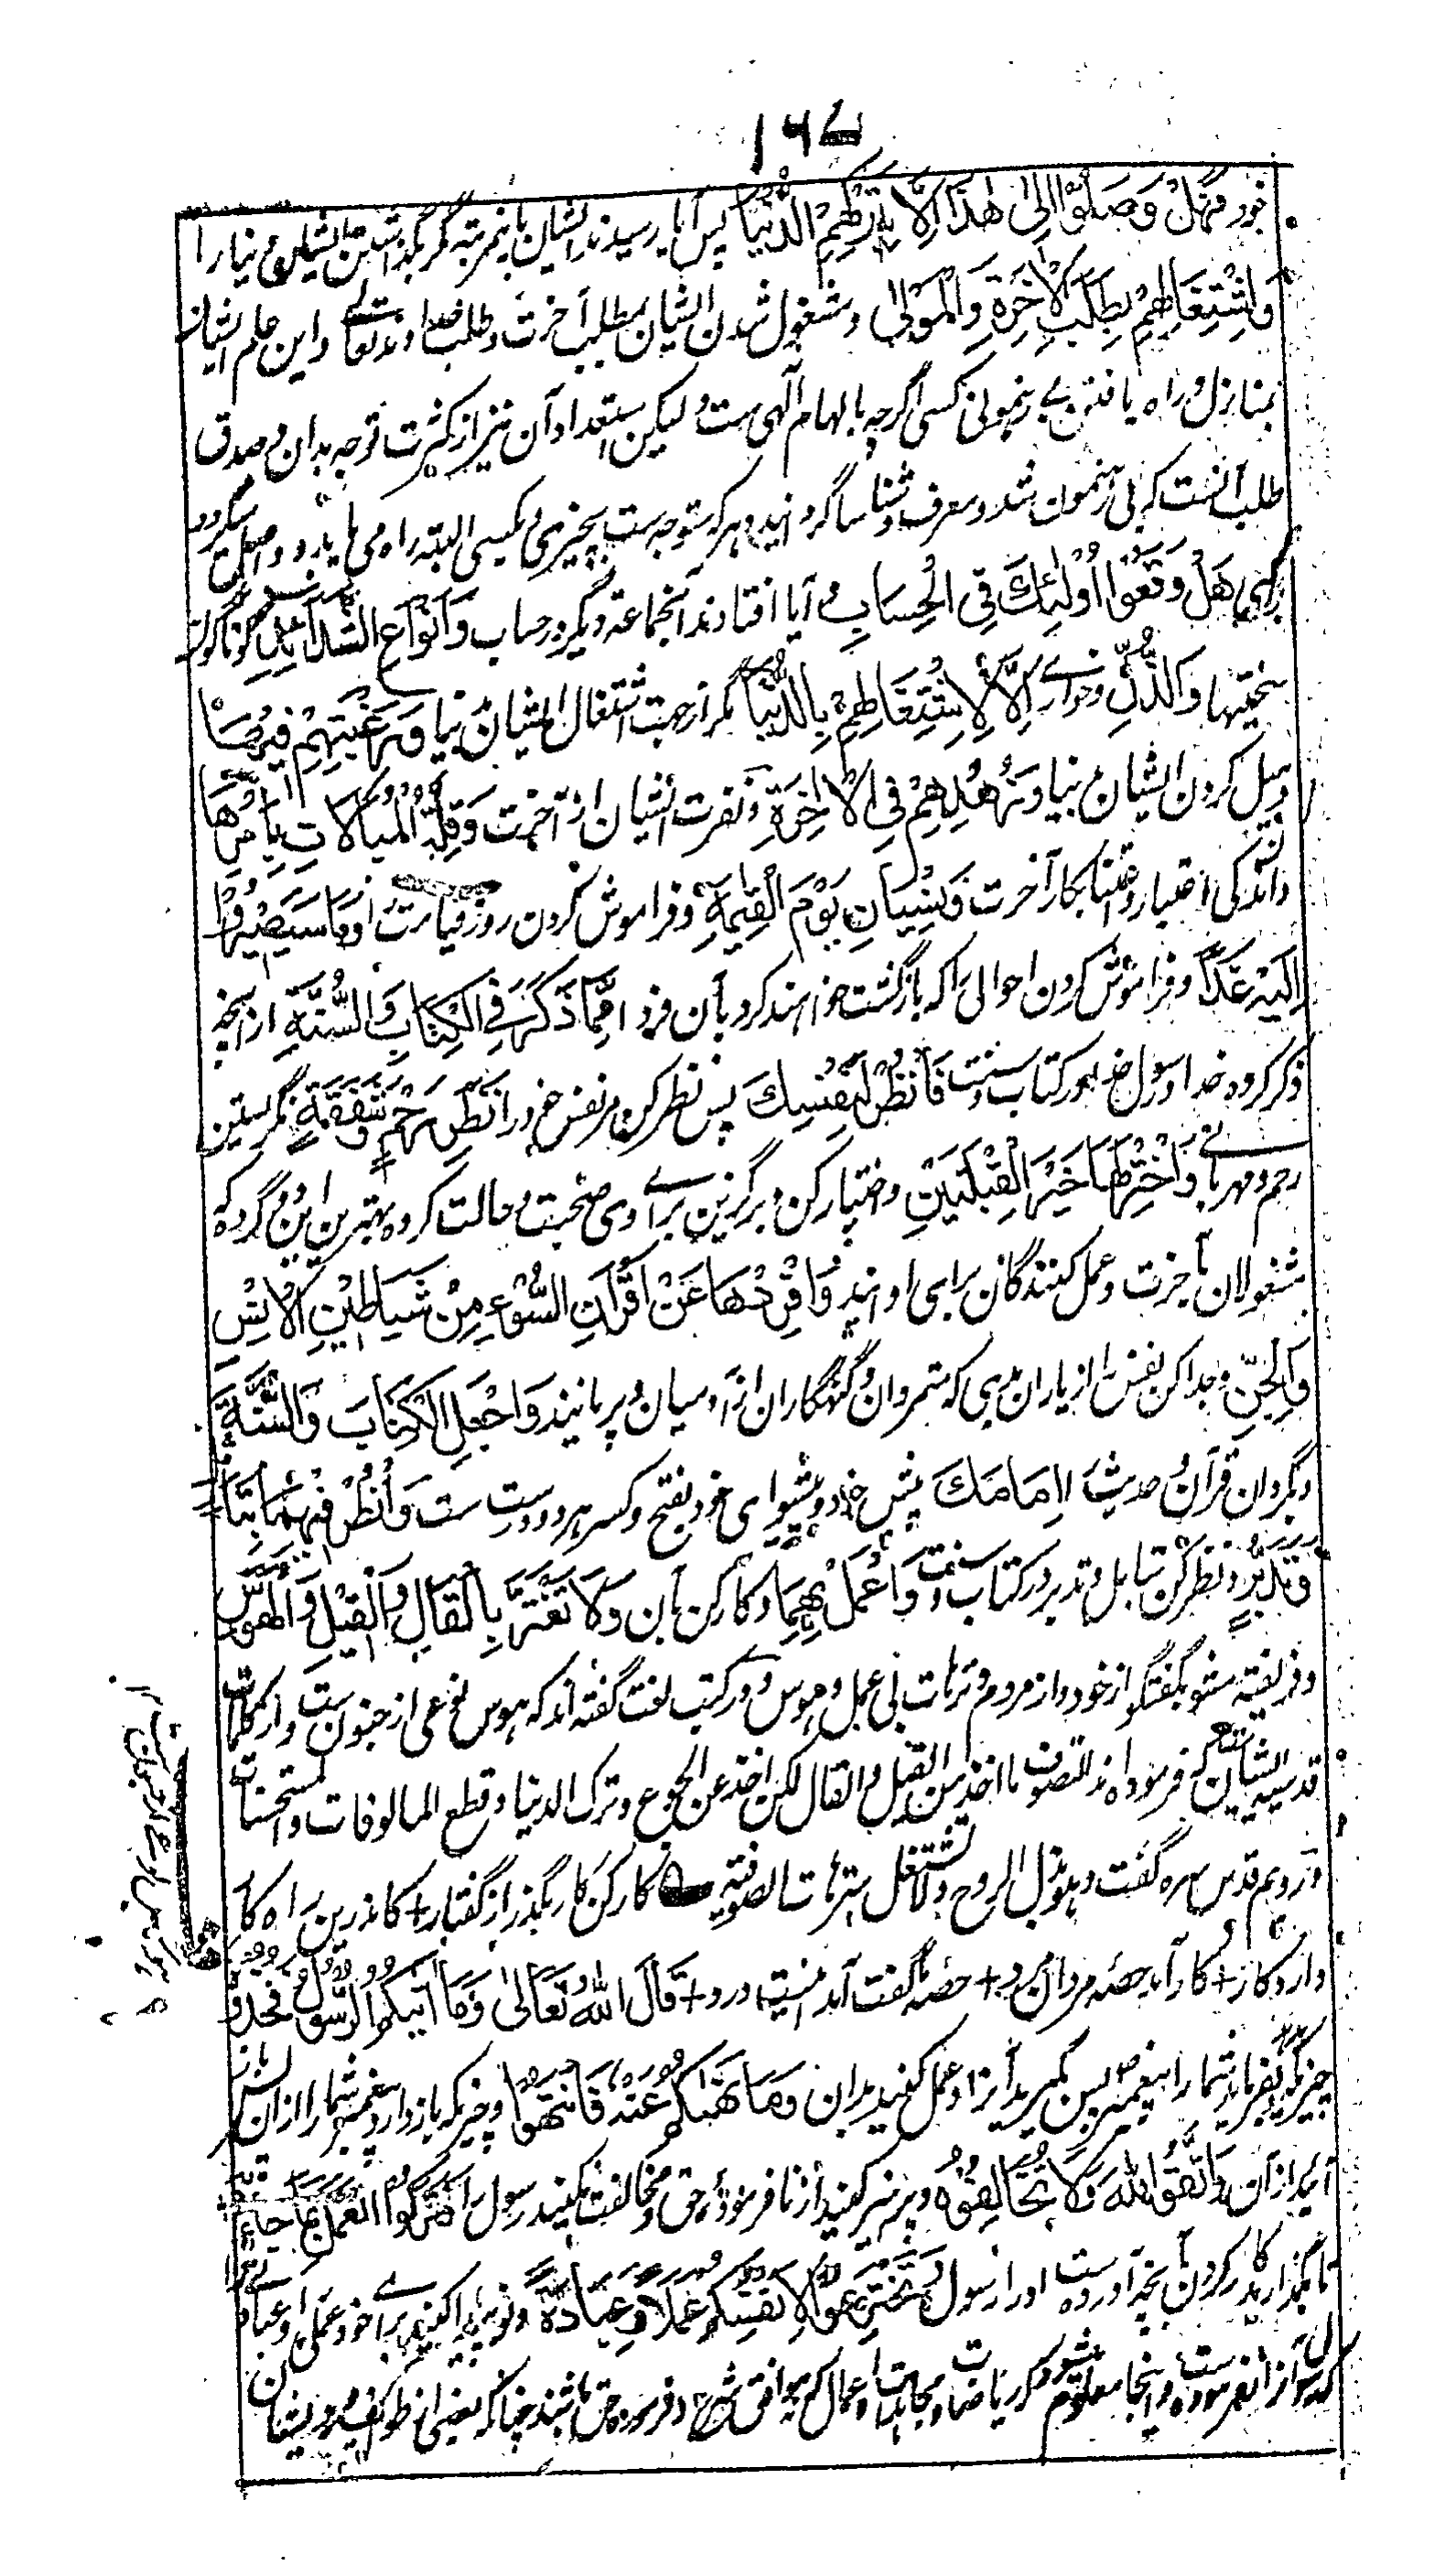 ۱۶۷
خود فَهَلْ وَصَلُوْا اِلٰی هٰذَا اِلَّا بِتَرْكِهِمُ الدُّنْيَا پس آیا رسیدند ایشان باین مرتبه مگر بگذاشتن ایشان دنیا را
وَاشْتِغَالِهِمْ بِطَلَبِ الْاٰخِرَةِ وَالْمَوْلٰى و مشغول شدن ایشان بطلب آخرت و طلب خداوند تعالی و این علم ایشان
بمنازل و راه یافتن بی رهنمونی کسی اگرچه بالهام الهی ست و لیکن استعداد آن نیز از کثرت توجه بدان و صدق
طلب آنست که بی رهنمون شد و معرف و شناسا گردانید و هرکه متوجه ست بچیزی و بکسی البته راه می یابد و واصل میگردد
هَلْ وَقَعُوْا اُولٰئِكَ فِى الْحِسَابِ و آیا افتادند آنجماعة دیگر در حساب وَاَنْوَاعِ الشَّدَائِدِ گوناگون
سختیها وَالذُّلِّ و خواری اِلَّا لِاِشْتِغَالِهِمْ بِالدُّنْيَا مگر از جهت اشتغال ایشان بدنیا وَرَغْبَتِهِمْ فِيْهَا
و میل کردن ایشان بدنیا وَزُهْدِهِمْ فِى الْاٰخِرَةِ و نفرت ایشان از آخرت وَقِلَّةِ الْمُبَالَاتِ بِاَمْرِهَا
و اندکی اعتبار و اعتنا بکار آخرت وَنِسْيَانِ يَوْمِ الْقِيٰمَةِ و فراموش کردن روز قیامت وَمَا سَيَصِيْرُوْنَ
اِلَيْهِ غَدًا و فراموش کردن احوالی را که بازگشت خواهند کرد بآن فردا مِمَّا ذُكِرَ فِى الْكِتَابِ وَالسُّنَّةِ از آنچه
ذکر کرده خدا و رسول خدا در کتاب و سنت فَانْظُرْ لِنَفْسِكَ پس نظر کن مر نفس خود را نَظَرَ رَحْمَةٍ وَشَفَقَةٍ نگریستن
رحم و مهربانی وَاخْتَرْ لَهَا خَيْرَ الْقَبِيْلَتَيْنِ و اختیار کن و برگزین برای وی صحبت و حالت گروه بهترین این دو گروه که
مشغولان بآخرت و عمل کنندگان برای او اند وَافْرِدْهَا عَنْ اَقْرَانِ السُّوْءِ مِنْ شَيَاطِيْنِ الْاِنْسِ
وَالْجِنِّ و جدا کن نفس را از یاران بدی که متمردان و گنهگاران از آدمیان و پریانیند وَاجْعَلِ الْكِتَابَ وَالسُّنَّةَ
و بگردان قرآن و حدیث را اِمَامَكَ پیش خود و پیشوای خود بفتح و کسر هر دو درست ست وَانْظُرْ فِيْهِمَا بِتَاَمُّلٍ
وَتَدَبُّرٍ و نظر کن بتامل و تدبر در کتاب و سنت وَاعْمَلْ بِهِمَا و کار کن بآن وَلَا تَغْتَرَّ بِالْقَالِ وَالْقِيْلِ وَالْهَوَسِ
و فریفته مشو بگفتگو از خود و از مردم و ترهات بی عمل و هوس و در کتب لغت گفته اند که هوس نوعی از جنون ست و از کلمات
قدسیه ایشان که فرموده اند التصوف ما اخذ من القیل و القال لکن اخذ عن الجوع و ترک الدنیا و قطع المالوفات و المستحسنات
و رویم قدس سره گفت و هو بذل الروح و لا تشتغل بترهات الصوفیه کار کن کار بگذر از گفتار + کاندرین راه کار
دارد کار + کار آمد حصهٔ مردان مرد + حصهٔ ما گفت آمد اینست درد + قَالَ اللهُ تَعَالٰى وَمَا اٰتٰيكُمُ الرَّسُوْلُ فَخُذُوْهُ
چیزیکه بفرماید شما را پیغمبر پس بگیرید آنرا و عمل کنید بدان وَمَا نَهٰىكُمْ عَنْهُ فَانْتَهُوْا و چیزیکه باز دارد پیغمبر شما را از آن پس باز
آئید از آن وَاتَّقُوا اللهَ وَلَا تُخَالِفُوْهُ و بپرهیز کنید از نافرمودهٔ حق و مخالفت نکنید رسول را فَتَتْرُكُوا الْعَمَلَ بِمَا جَاءَ بِهٖ
تا بگذارید کار کردن بآنچه آورده ست او را رسول وَتَخْتَرِعُوْا لِاَنْفُسِكُمْ عَمَلًا وَعِبَادَةً و نو پیدا کنید برای خود عملی و عبادتی
که رسول از آن نفرموده ست و اینجا معلوم میشود که ریاضات و مجاهدات و اعمال که نه موافق شرع و فرموده حق باشند چنانکه بعضی از طوائف درویشان